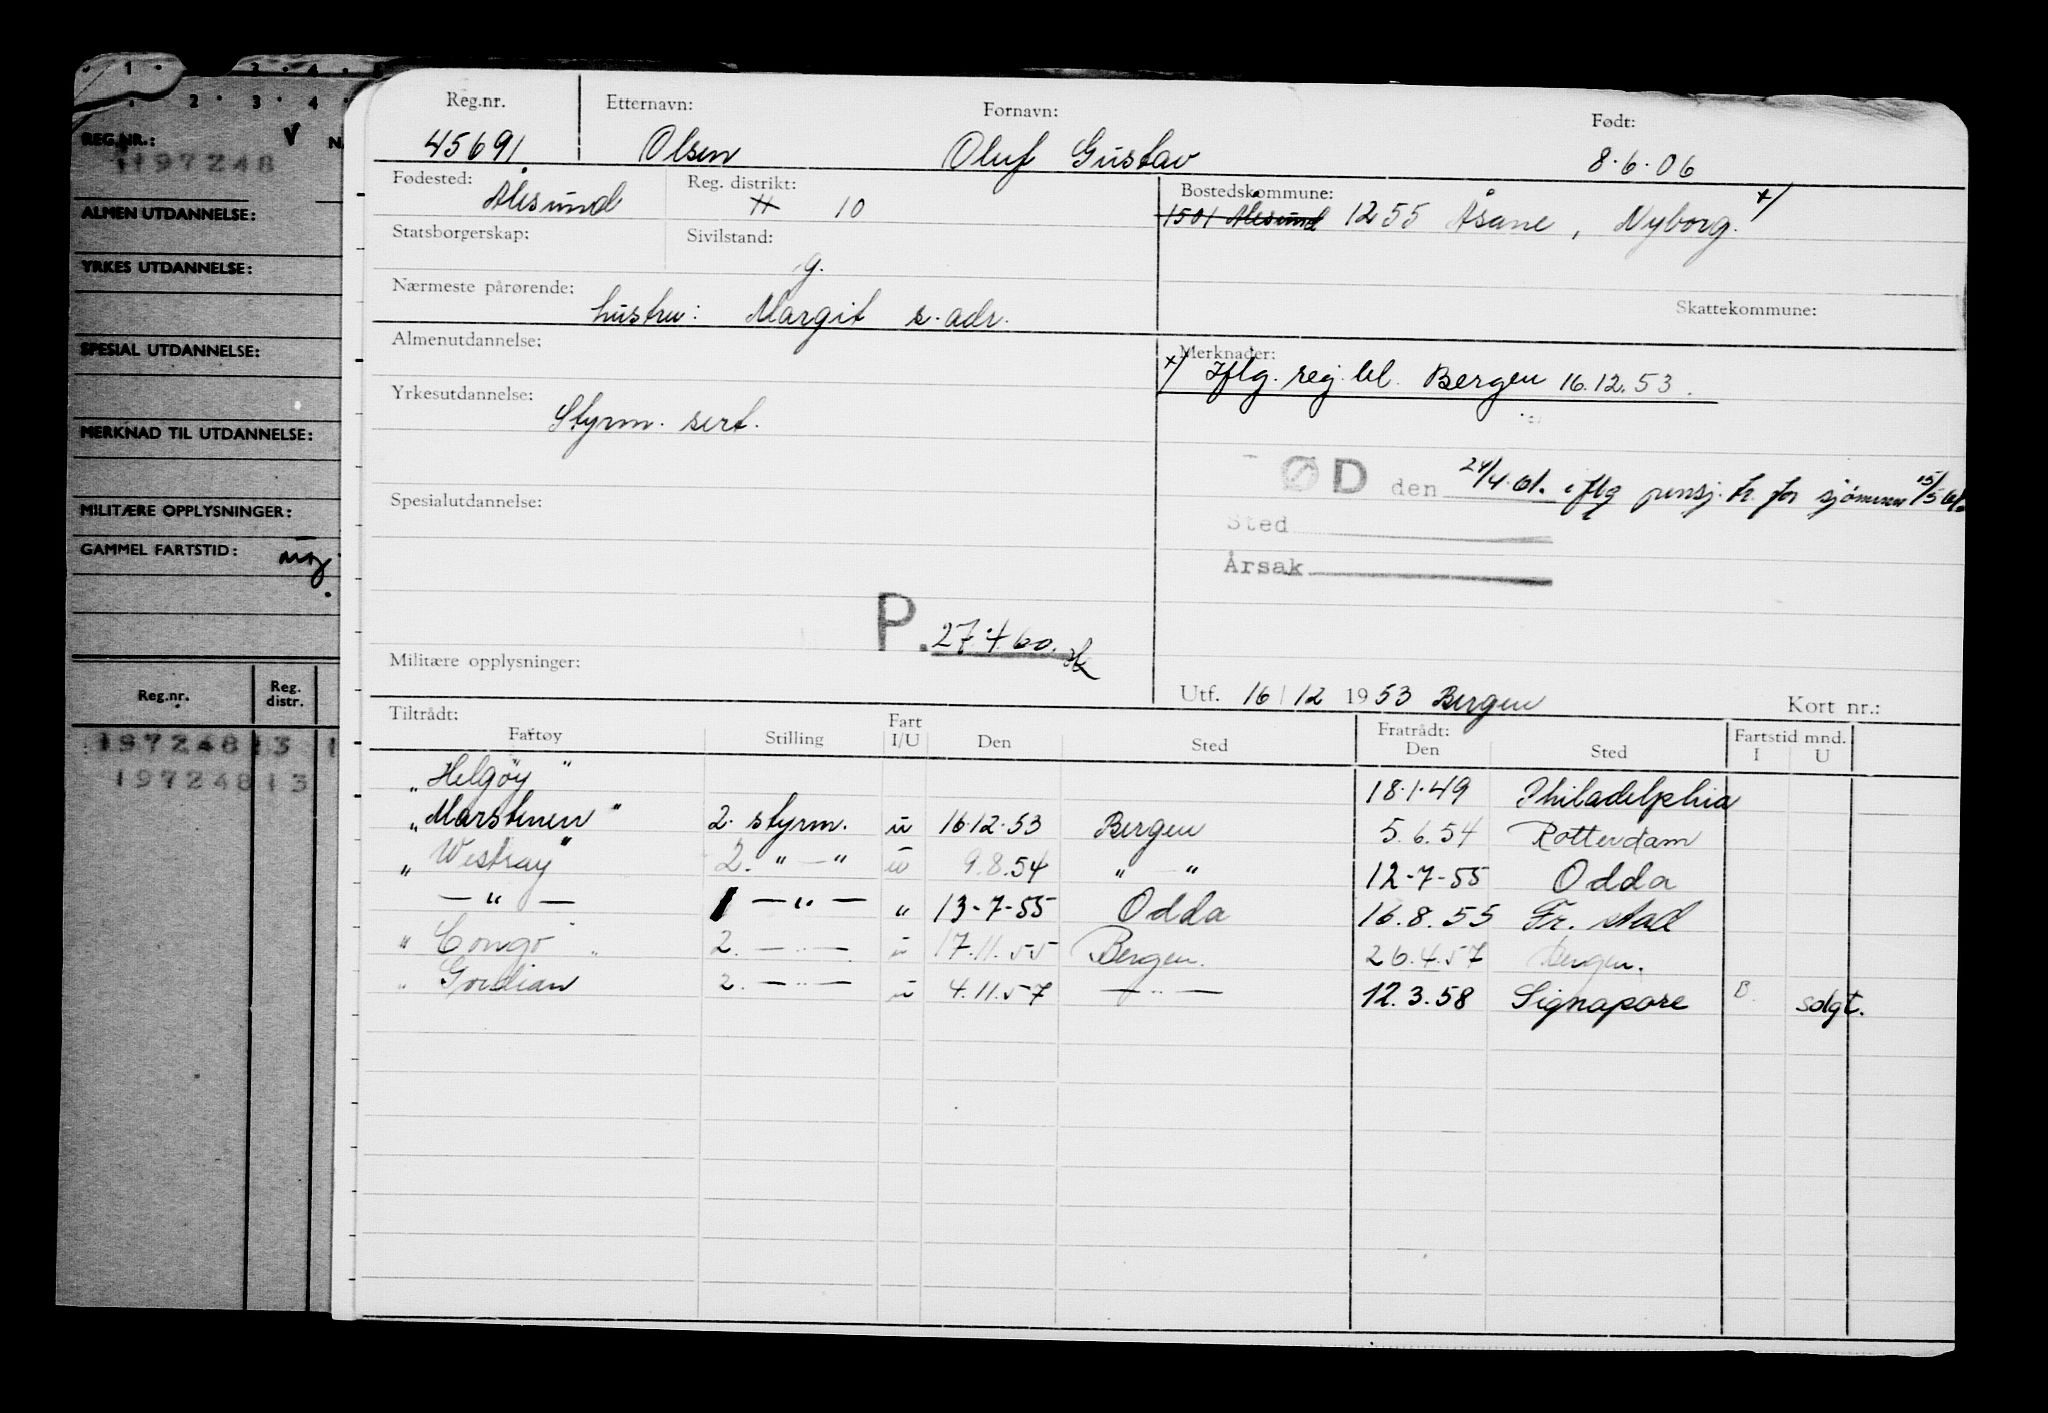 1 2 3 4
2 3 4
REG.NR.: V N
1197248
ALMEN UTDANNELSE:
YRKES UTDANNELSE:
SPESIAL UTDANNELSE:
MERKNAD TIL UTDANNELSE:
MILITÆRE OPPLYSNINGER:
GAMMEL FARTSTID:
Reg.nr. Reg. distr.
19724813 1
19724813
Reg.nr. Etternavn: Fornavn: Født:
45691 Olsen Oluf Gustav 8.6.06
Fødested: Ålesund Reg. distrikt: 11 10 Bostedskommune:
1501 Ålesund 1255 Åsane, Nyborg. x/
Statsborgerskap: Sivilstand: g.
Nærmeste pårørende: Skattekommune:
hustru: Margit s. adr.
Almenutdannelse: Merknader:
x/ Iflg. reg. bl. Bergen 16.12.53.
Yrkesutdannelse:
Styrm. sert.
ØD den 24/4.61. iflg pensj. tr. for sjømenn 15/5 61.
Spesialutdannelse: Sted
Årsak
P. 27.4 60.
Militære opplysninger:
Utf. 16/12 1953 Bergen Kort nr.:
Tiltrådt: Fart Fratrådt: Fartstid mnd.
Fartøy Stilling I/U Den Sted Den Sted I U
"Helgøy" 18.1.49 Philadelphia
"Marstenen" 2. styrm. u 16.12.53 Bergen 5.6.54 Rotterdam
"Westray" 2. " — " u 9.8.54 " " 12-7-55 Odda
— " — 1 — " — " 13-7-55 Odda 16.8.55 Fr. stad
"Congo" 2. — " — u 17.11.55 Bergen. 26.4.57 Bergen.
"Gordian 2. — " — u 4.11.57 — " — 12.3.58 Signapore B. solgt.